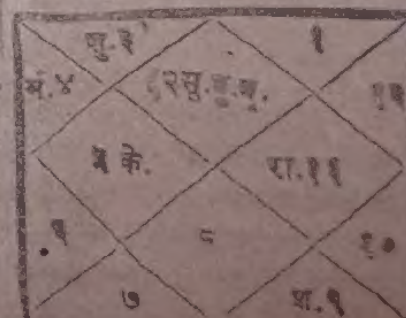 शु.३ १
मं.४ २सु.बु.बृ. १२
५ के. रा.११
६ ८ १०
७ श.९